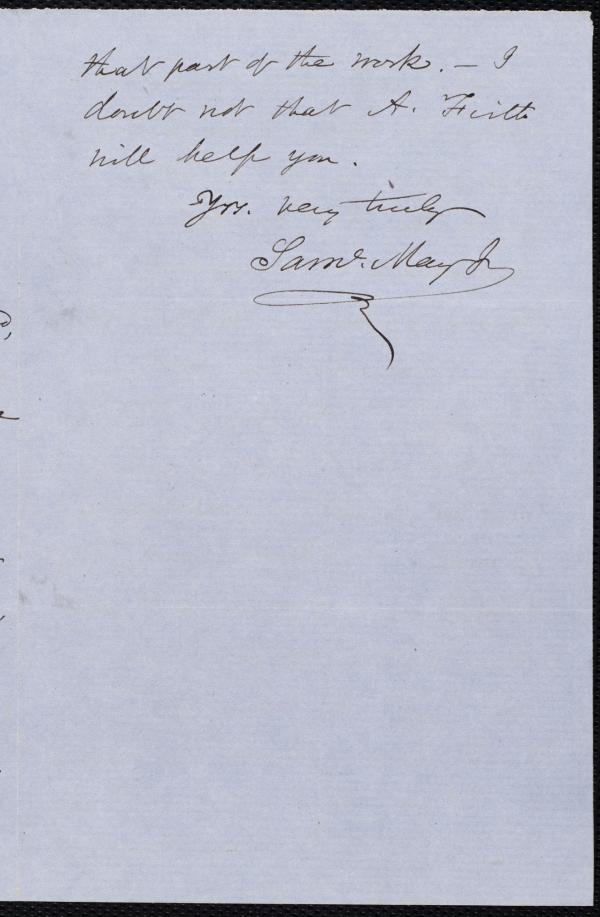 that part of the work. – I
doubt not that A. Firth
will help you.
Yrs. very truly
Saml. May Jr